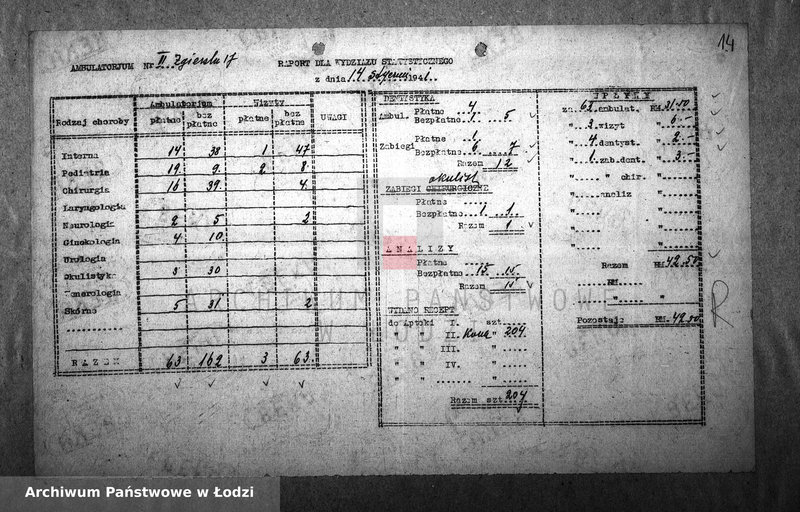 14
AMBULATORJUM Nr II Zgierska 17
RAPORT DLA WYDZIAŁU STATYSTYCZNEGO
z dnia 14 stycznia 1941.
Rodzaj choroby Ambulatorium Wizyty UWAGI
płatne bez płatne płatne bez płatne
Interna 14 38 1 47
Pediatria 19 9 2 8
Chirurgia 16 39 4
Laryngologia
Neurologia 2 5 2
Ginekologia 4 10
Urologia
Okulistyka 3 30
Wenerologia
Skórne 5 31 2
RAZEM 63 162 3 63
DENTYSTYKA
Ambul. Płatne 4
Bezpłatne 1 5
Zabiegi Płatne 1
Bezpłatne 6 7
Razem 12
okulist
ZABIEGI CHIRURGICZNE
Płatne
Bezpłatne 1 1
Razem 1
ANALIZY
Płatne
Bezpłatne 15 15
Razem 15
WYDANO RECEPT
do Apteki I. szt.
" " II. " 209
" " III. "
" " IV. "
" " "
Razem szt. 209
WPŁYWY
za 62 ambulat. RM. 31.50
" 3 wizyt " 6.-
" 4 dentyst. " 2.-
" 1 zab.dent. " 3.-
" " chir. "
" analiz "
" "
" "
Razem RM. 42.50
RM.
"
Pozostaje RM. 42.50
R
ARCHIWUM PAŃSTWOWE
W ŁODZI
Archiwum Państwowe w Łodzi